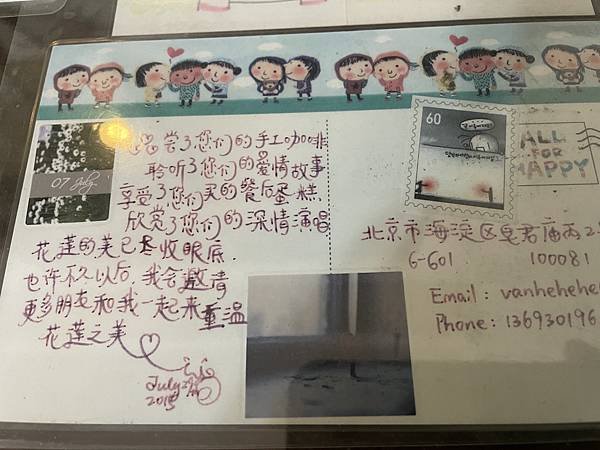 尝了您们的手工咖啡
聆听了您们的爱情故事
享受了您们买的餐后蛋糕
欣赏了您们的深情演唱
花莲的美已尽收眼底.
也许不久以后 我会邀请
更多朋友和我一起来重温
花莲之美
July
2015
07 July.
60
ALL
FOR
HAPPY
北京市海淀区皂君庙丙2
6-601 100081
Email: vanhehehe
Phone: 136930196